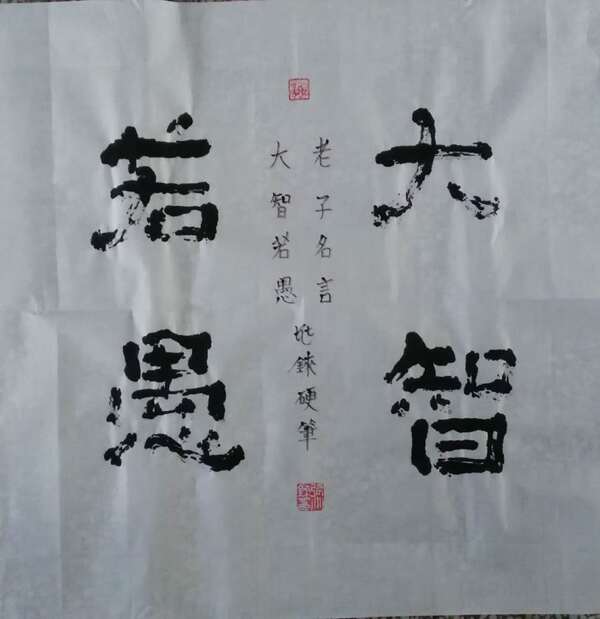 大智
若愚
老子名言
大智若愚
硬筆